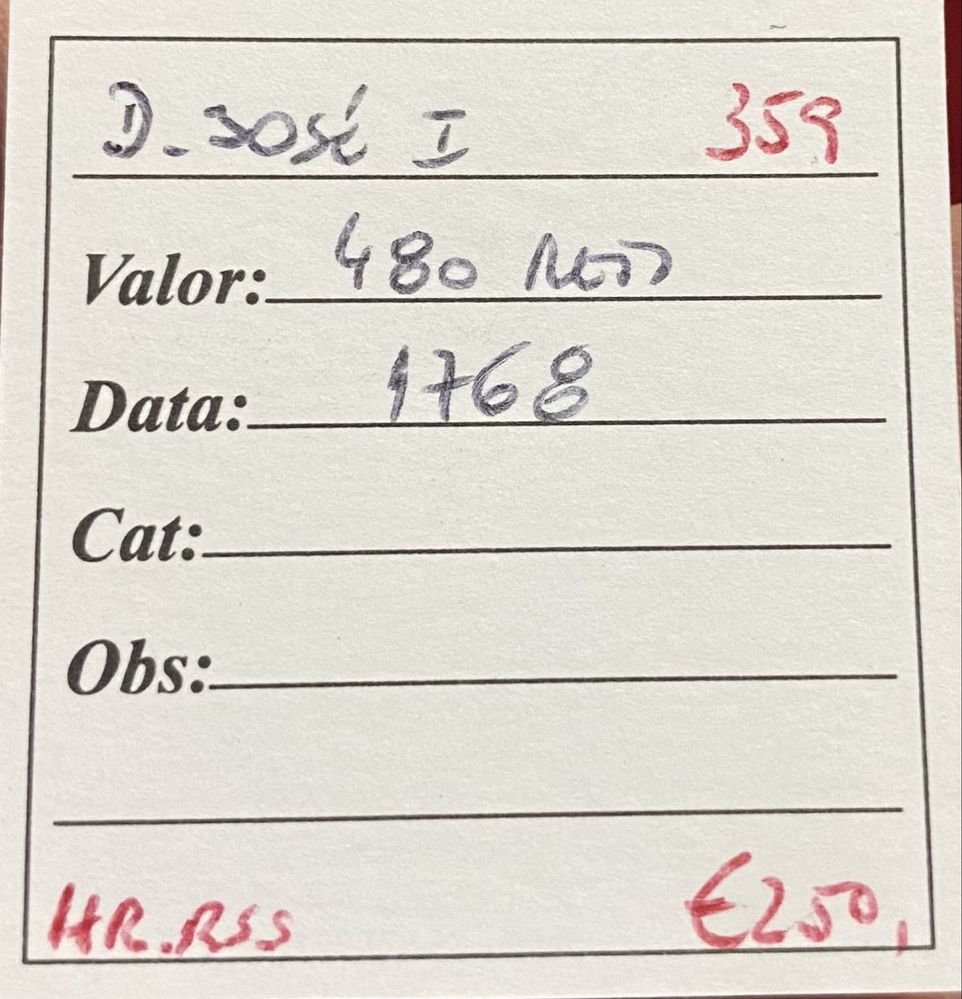 D. José I 359
Valor: 480 Reis
Data: 1768
Cat:
Obs:
HR.RSS €250,